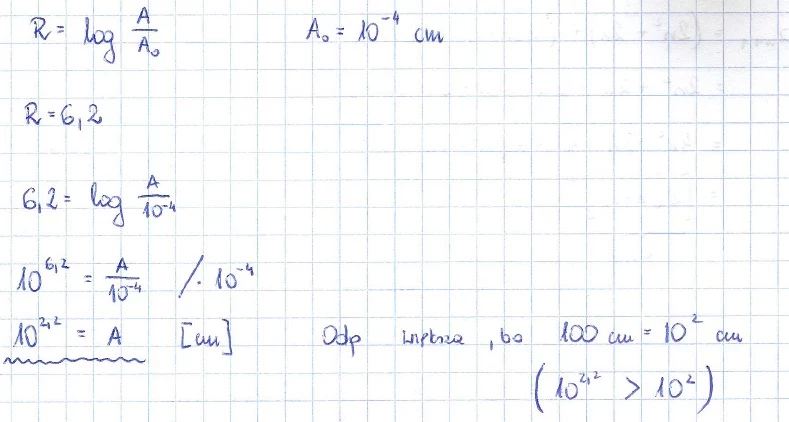 R = log A/A₀ A₀ = 10⁻⁴ cm
R = 6,2
6,2 = log A/10⁻⁴
10^6,2 = A/10⁻⁴ /· 10⁻⁴
10^2,2 = A [cm] Odp większa, bo 100 cm = 10² cm
(10^2,2 > 10²)